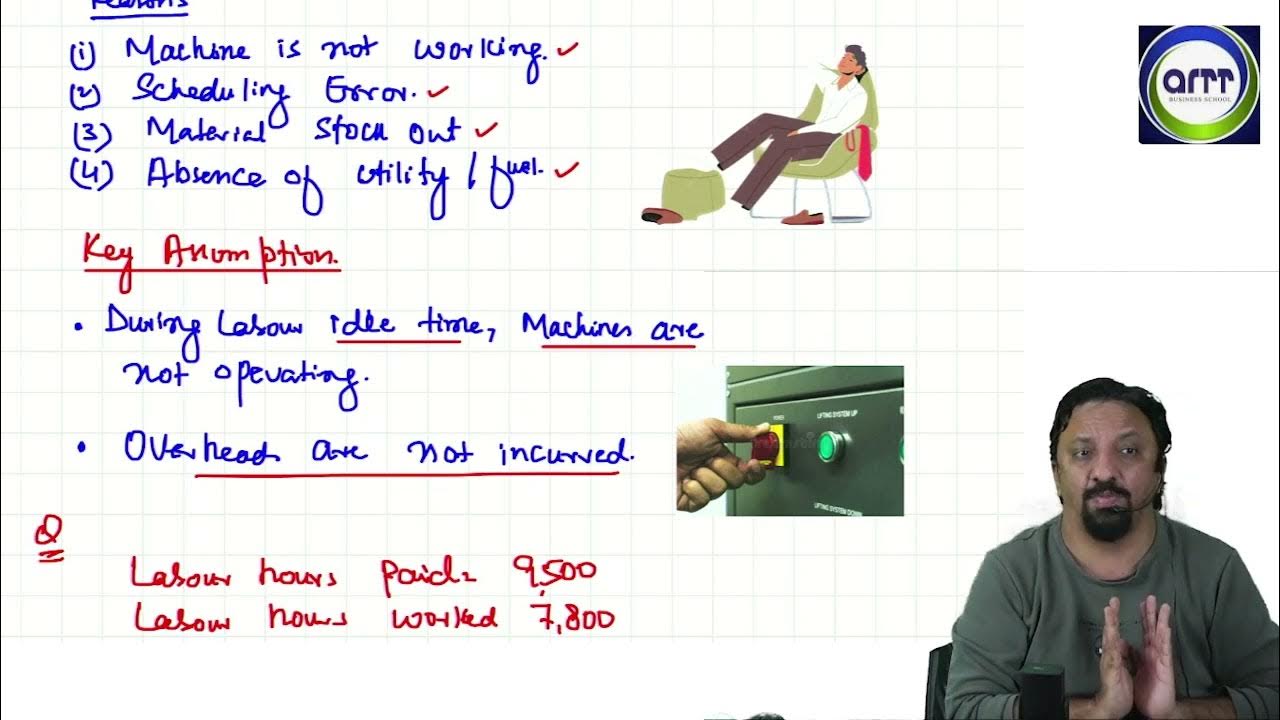 Reasons
(1) Machine is not working.
(2) Scheduling Error.
(3) Material Stock out
(4) Absence of utility / fuel.
Key Assumption.
• During Labour idle time, Machines are
not operating.
• Overheads are not incurred.
Q
Labour hours paid= 9,500
Labour hours worked 7,800
QRTT
BUSINESS SCHOOL
POWER
LIFTING SYSTEM UP
LIFTING SYSTEM DOWN